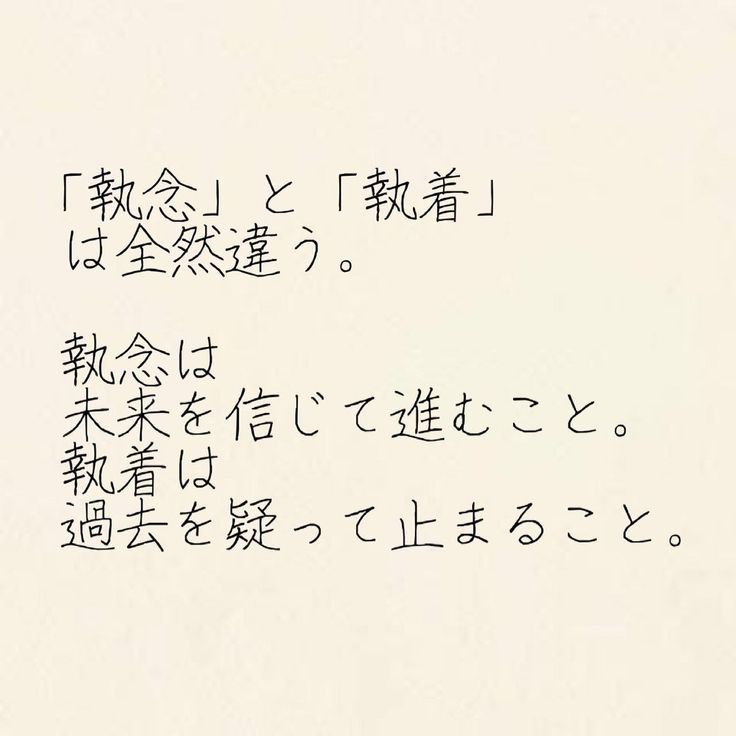 「執念」と「執着」
は全然違う。
執念は
未来を信じて進むこと。
執着は
過去を疑って止まること。